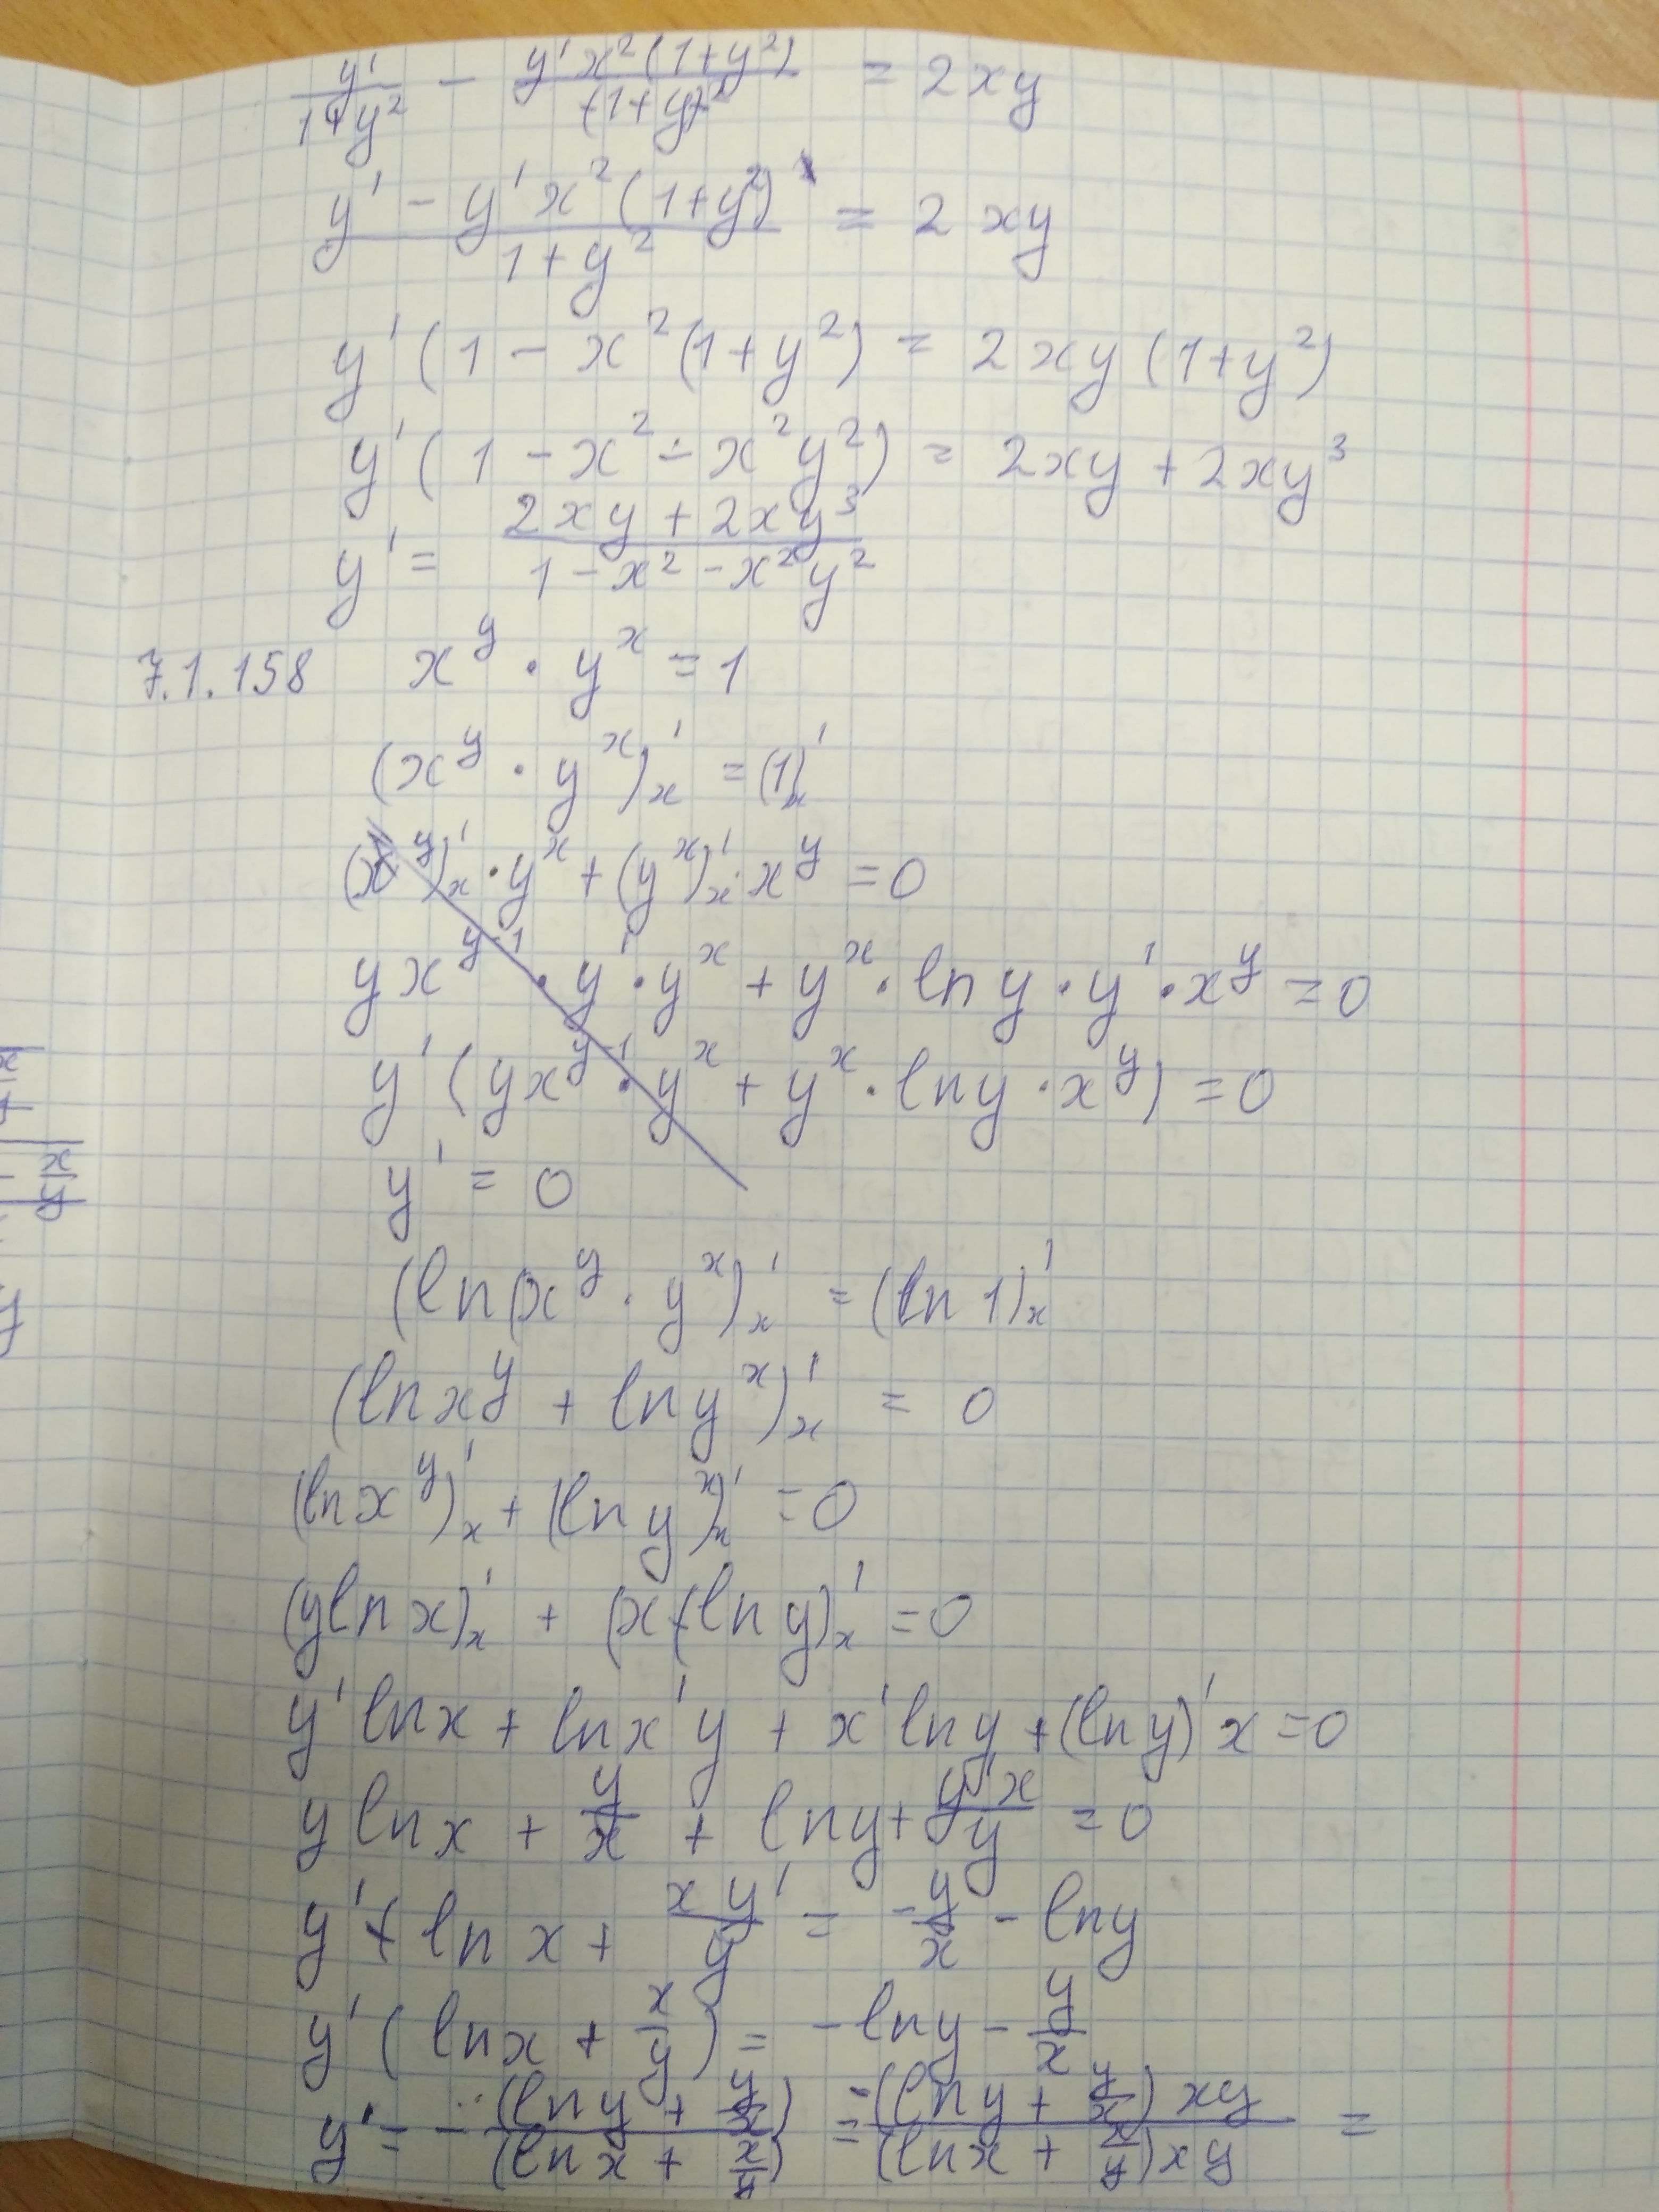 y'/(1+y²) - y'x²(1+y²)/(1+y²) = 2xy
(y' - y'x²(1+y²))/(1+y²) = 2xy
y'(1 - x²(1+y²) = 2xy(1+y²)
y'(1 - x² - x²y²) = 2xy + 2xy³
y' = (2xy + 2xy³)/(1 - x² - x²y²)
7.1.158 x^y · y^x = 1
(x^y · y^x)'ₓ = (1)'ₓ
(x^y)'ₓ · y^x + (y^x)'ₓ · x^y = 0
yx^(y-1) · y' · y^x + y^x · ln y · y' · x^y = 0
y'(yx^(y-1) · y^x + y^x · ln y · x^y) = 0
y' = 0
(ln(x^y · y^x)'ₓ = (ln 1)'ₓ
(ln x^y + ln y^x)'ₓ = 0
(ln x^y)'ₓ + (ln y^x)'ₓ = 0
(y ln x)'ₓ + (x(ln y)'ₓ = 0
y' ln x + ln x' y + x' ln y + (ln y)' x = 0
y ln x + y/x + ln y + y'x/y = 0
y' + ln x + xy'/y = -y/x - ln y
y'(ln x + x/y) = -ln y - y/x
y' = -(ln y + y/x)/(ln x + x/y) = -(ln y + y/x)xy/(ln x + x/y)xy =
x
y